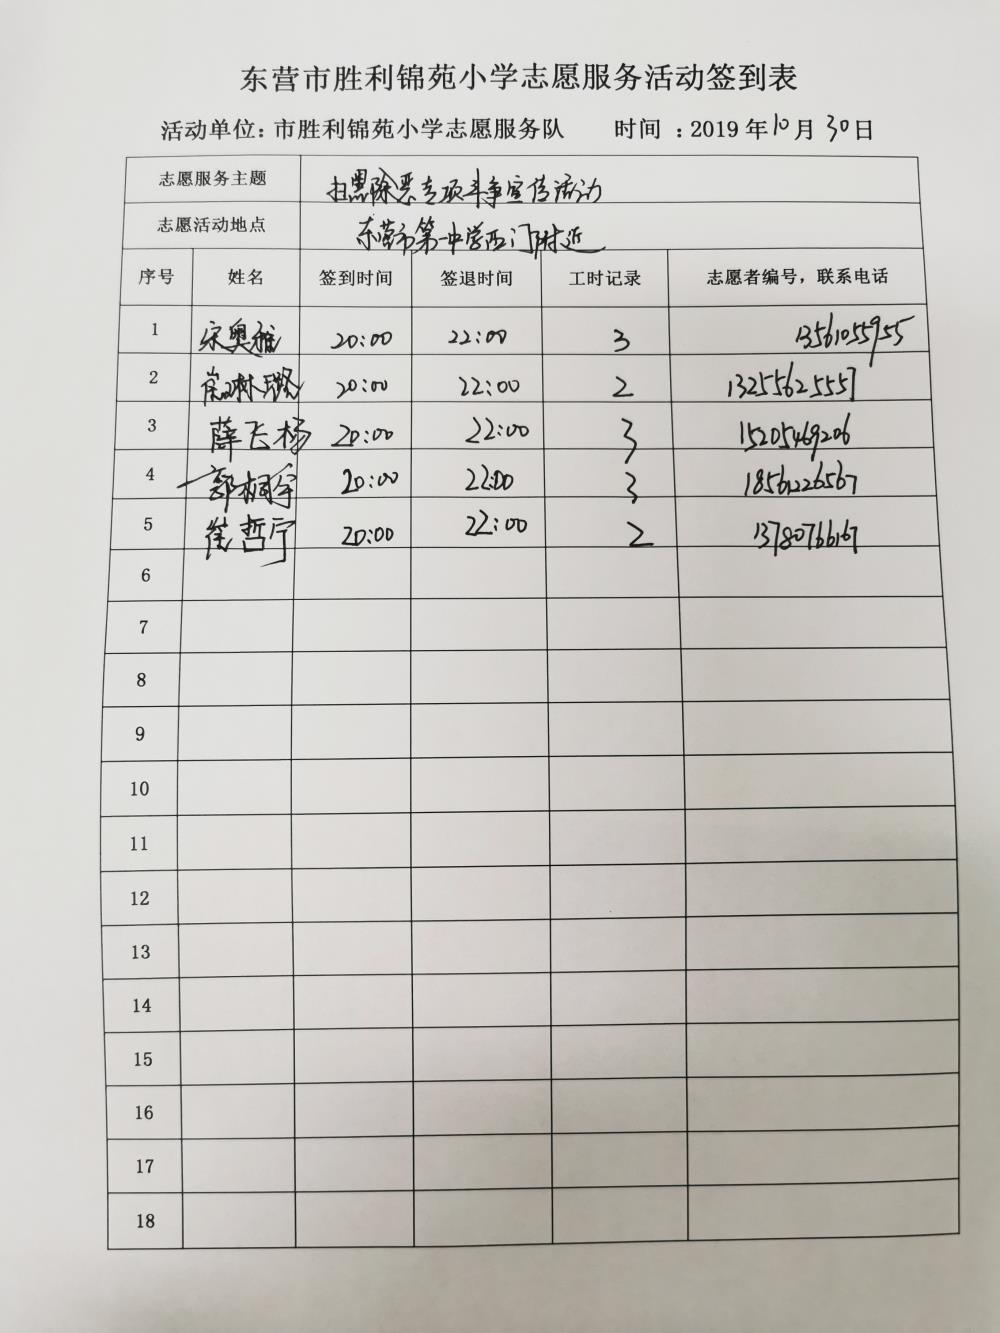 东营市胜利锦苑小学志愿服务活动签到表
活动单位：市胜利锦苑小学志愿服务队 时间 ：2019 年10月 30日
志愿服务主题 扫黑除恶专项斗争宣传活动
志愿活动地点 东营市第一中学西门附近
序号 姓名 签到时间 签退时间 工时记录 志愿者编号，联系电话
1 宋奥雅 20:00 22:00 3 13561055955
2 20:00 22:00 2 13255625557
3 薛飞杨 20:00 22:00 3 15205469206
4 郭桐宇 20:00 22:00 3 18561226567
5 崔哲宁 20:00 22:00 2 13780766167
6
7
8
9
10
11
12
13
14
15
16
17
18